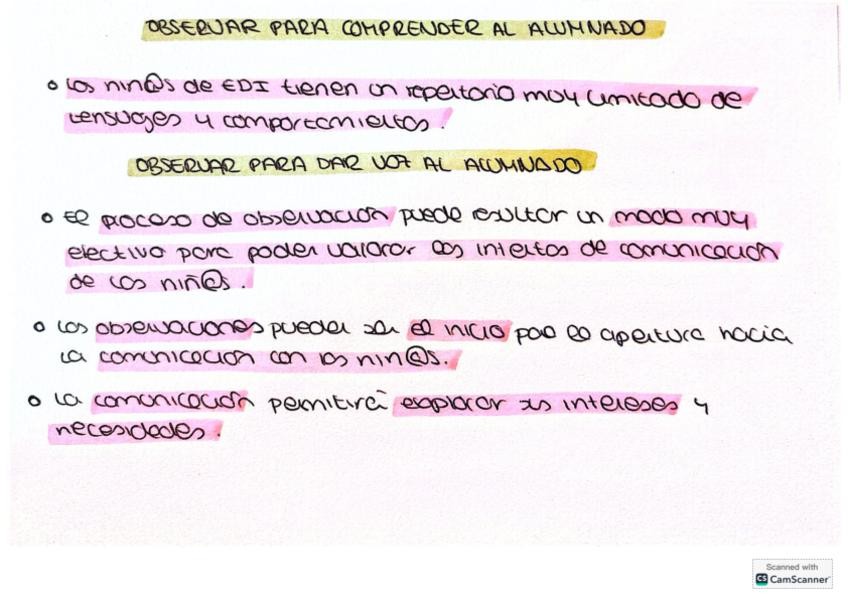 OBSERVAR PARA COMPRENDER AL ALUMNADO
• Los niñ@s de EDI tienen un repertorio muy limitado de
lenguajes y comportamientos.
OBSERVAR PARA DAR VOZ AL ALUMNADO
• El proceso de observación puede resultar un modo muy
efectivo para poder valorar los intentos de comunicación
de los niñ@s.
• Las observaciones pueden ser el inicio para la apertura hacia
la comunicación con los niñ@s.
• La comunicación permitirá explorar sus intereses y
necesidades.
Scanned with
CS CamScanner